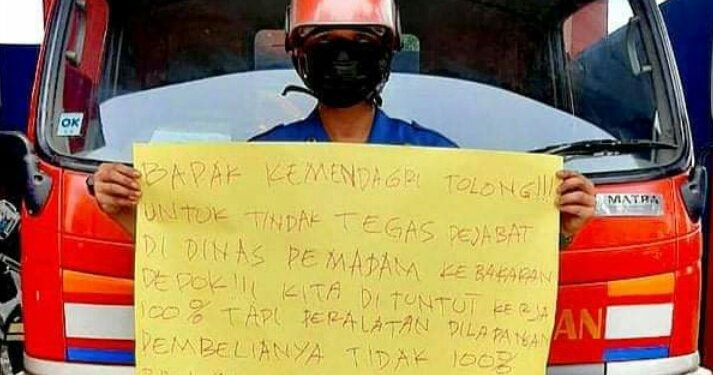 OK
BAPAK KEMENDAGRI TOLONG!!!
UNTUK TINDAK TEGAS PEJABAT
DI DINAS PEMADAM KEBAKARAN
DEPOK!!! KITA DI TUNTUT KERJA
100% TAPI PERALATAN DILAPANGAN
PEMBELIANYA TIDAK 100%
MATRA
AN